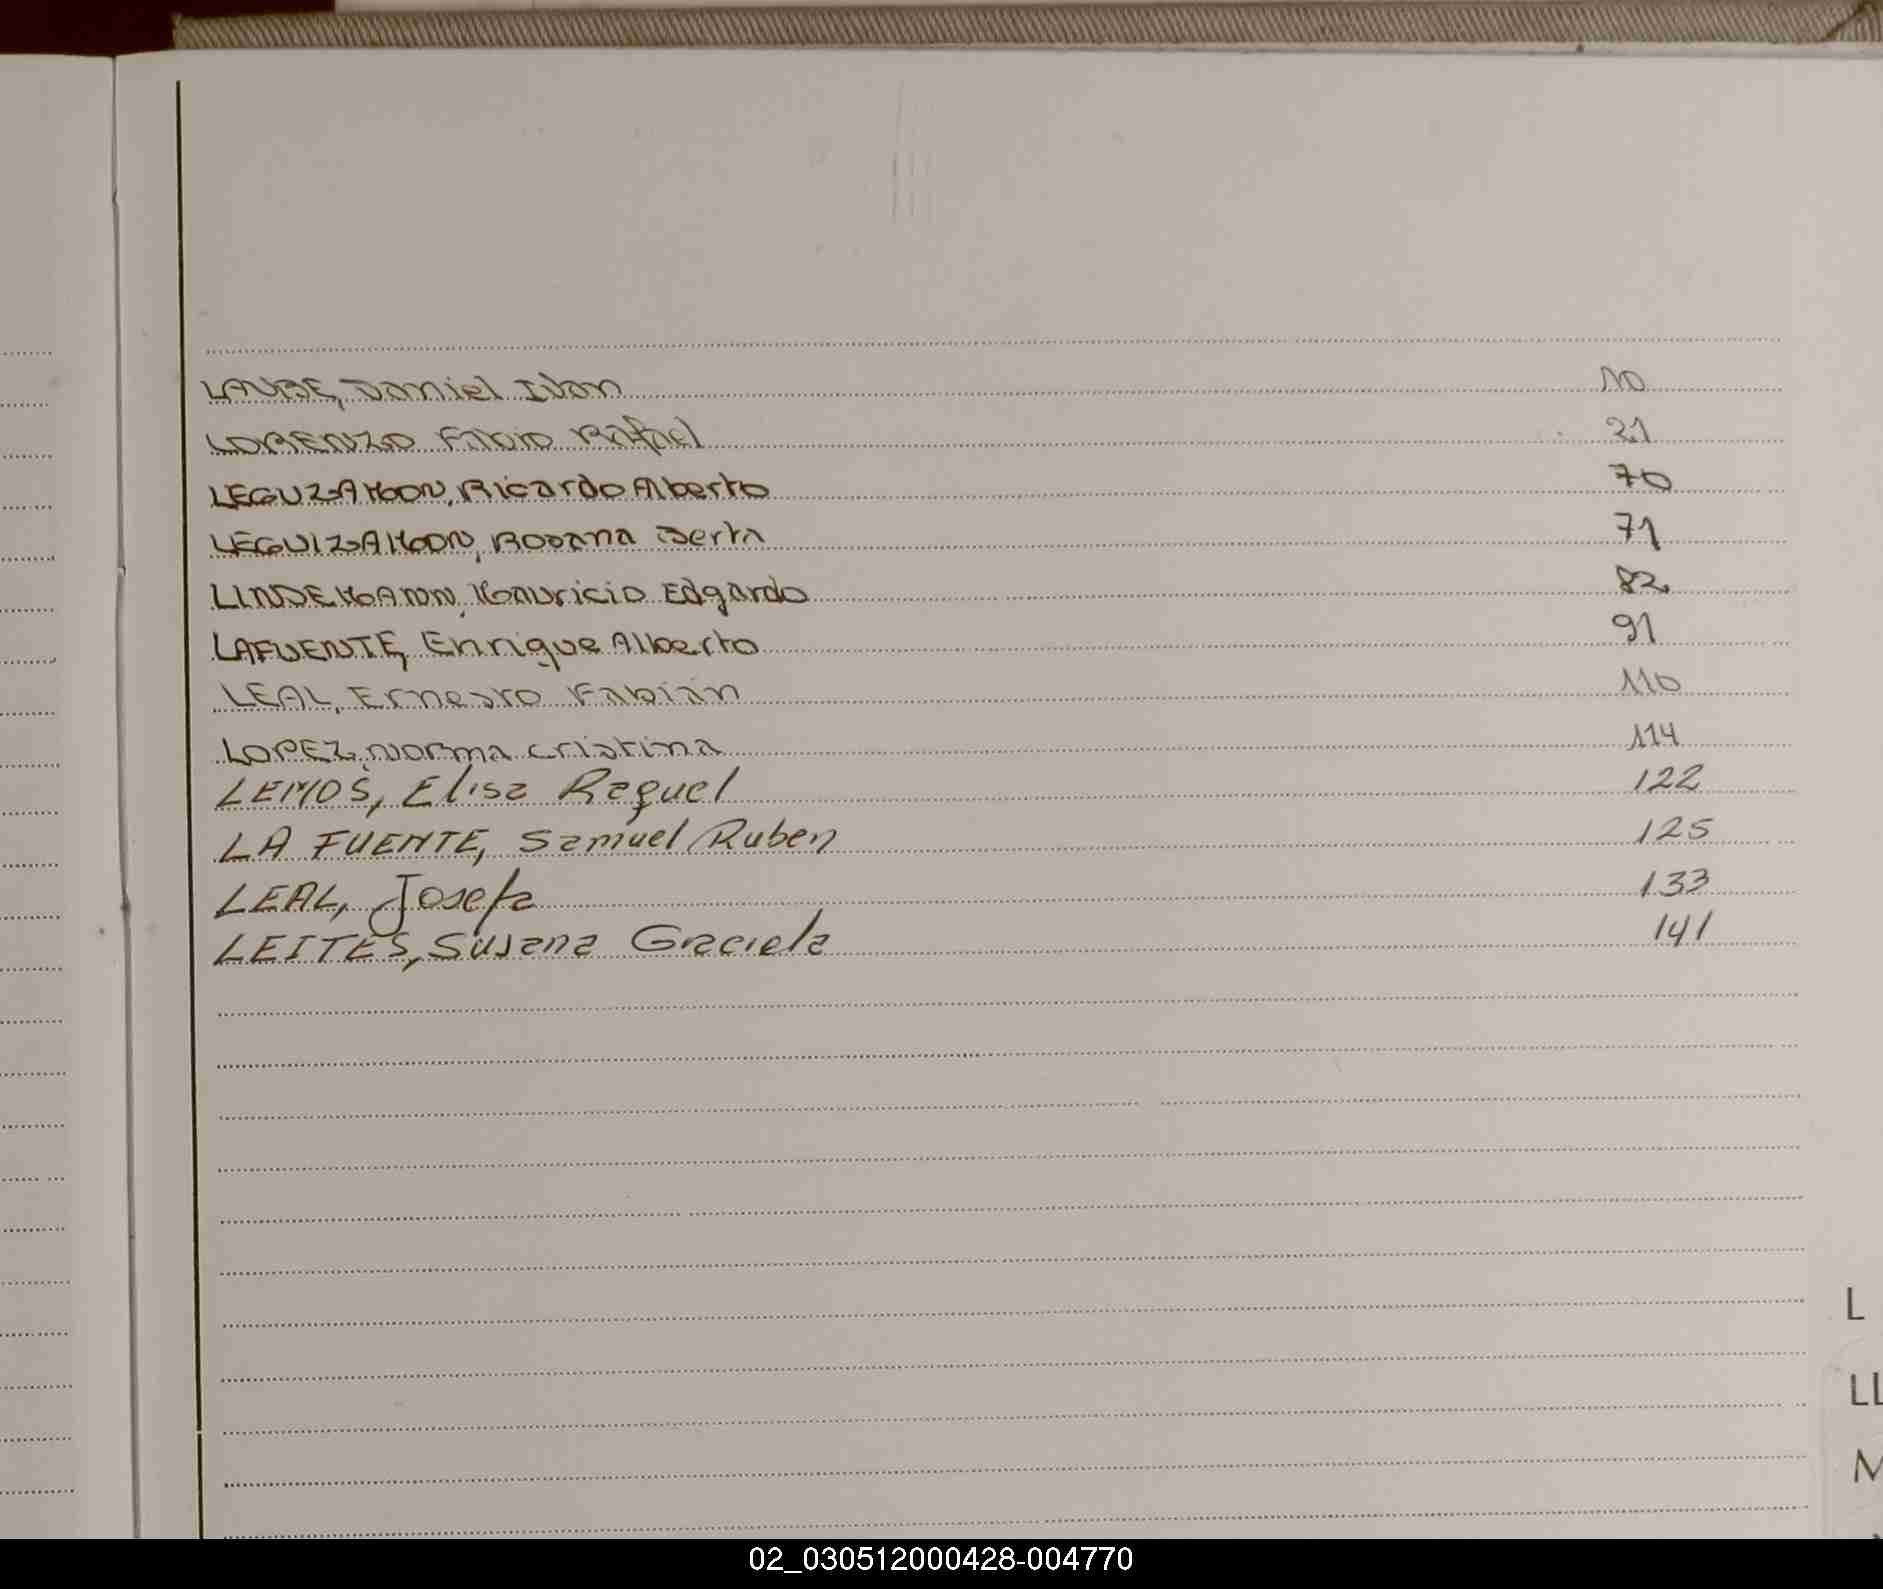 LAUBE, Daniel Ivan 10
LORENZO Fabio Rafael 21
LEGUIZAMON, Ricardo Alberto 70
LEGUIZAMON, Rosana Berta 71
LINDEMANN, Mauricio Edgardo 82
LAFUENTE, Enrique Alberto 91
LEAL, Ernesto Fabian 110
LOPEZ, Norma Cristina 114
LEMOS, Elisa Raquel 122
LA FUENTE, Samuel Ruben 125
LEAL, Josefa 133
LEITES, Susana Graciela 141
L
LL
M
02_030512000428-004770